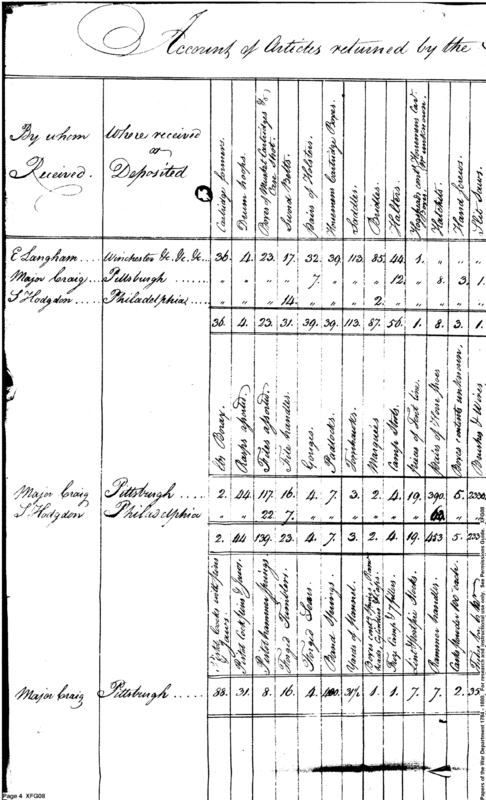 Account of Articles returned by the
By whom Received. Where received or Deposited
Cartridge formers. Drum hoops. Boxes of Musket Cartridges & Case Shot. Sword Belts. Pairs of Holsters. Horsemens Cartridge Boxes. Saddles. Bridles. Halters. Hogshead, contg Horsemens Car. Boxes. Hatchets. Hand screws. Slit Saws.
E Langham.... Winchester &c. &c. &c... 36. 4. 23. 17. 32. 39. 113. 85. 44. 1. " " "
Major Craig.... Pittsburgh...... " " " " 7. " " " 12. " 8. 3. 1.
S Hodgdon.... Philadelphia..... " " " 14. " " " 2. " " " " "
36. 4. 23. 31. 39. 39. 113. 87. 56. 1. 8. 3. 1
Rasps assorted. Files assorted. File handles. Gouges. Padlocks. Tomhawks. Marquies. Camp Stools. pieces of Foot line. Pairs of Horse shoes. Boxes contents unknown. Brushes & Wires
Major Craig Pittsburgh.... 2. 44. 117. 16. 4. 7. 3. 2. 4. 19. 390. 5. 233
S. Hodgdon Philadelphia " " 22. 7. " " " " " " " "
2. 44 139. 23. 4. 7. 3. 2. 4. 19. 453 5. 233
Pistol Cocks with pins & Jaws. Pistol Cock pins & Jaws. Pistol hammer Springs. Forged Tumblers. Forged Sears. Brand Springs. Yards of Flannel. Rammer handles.
Major Craig Pittsburgh..... 88. 31. 8. 16. 4. 31½ 1. 1. 7. 7. 2. 35
Page 4 XFG08
Papers of the War Department 1784 - 1800. For research and instructional use only. See Permissions Guide. XFG08